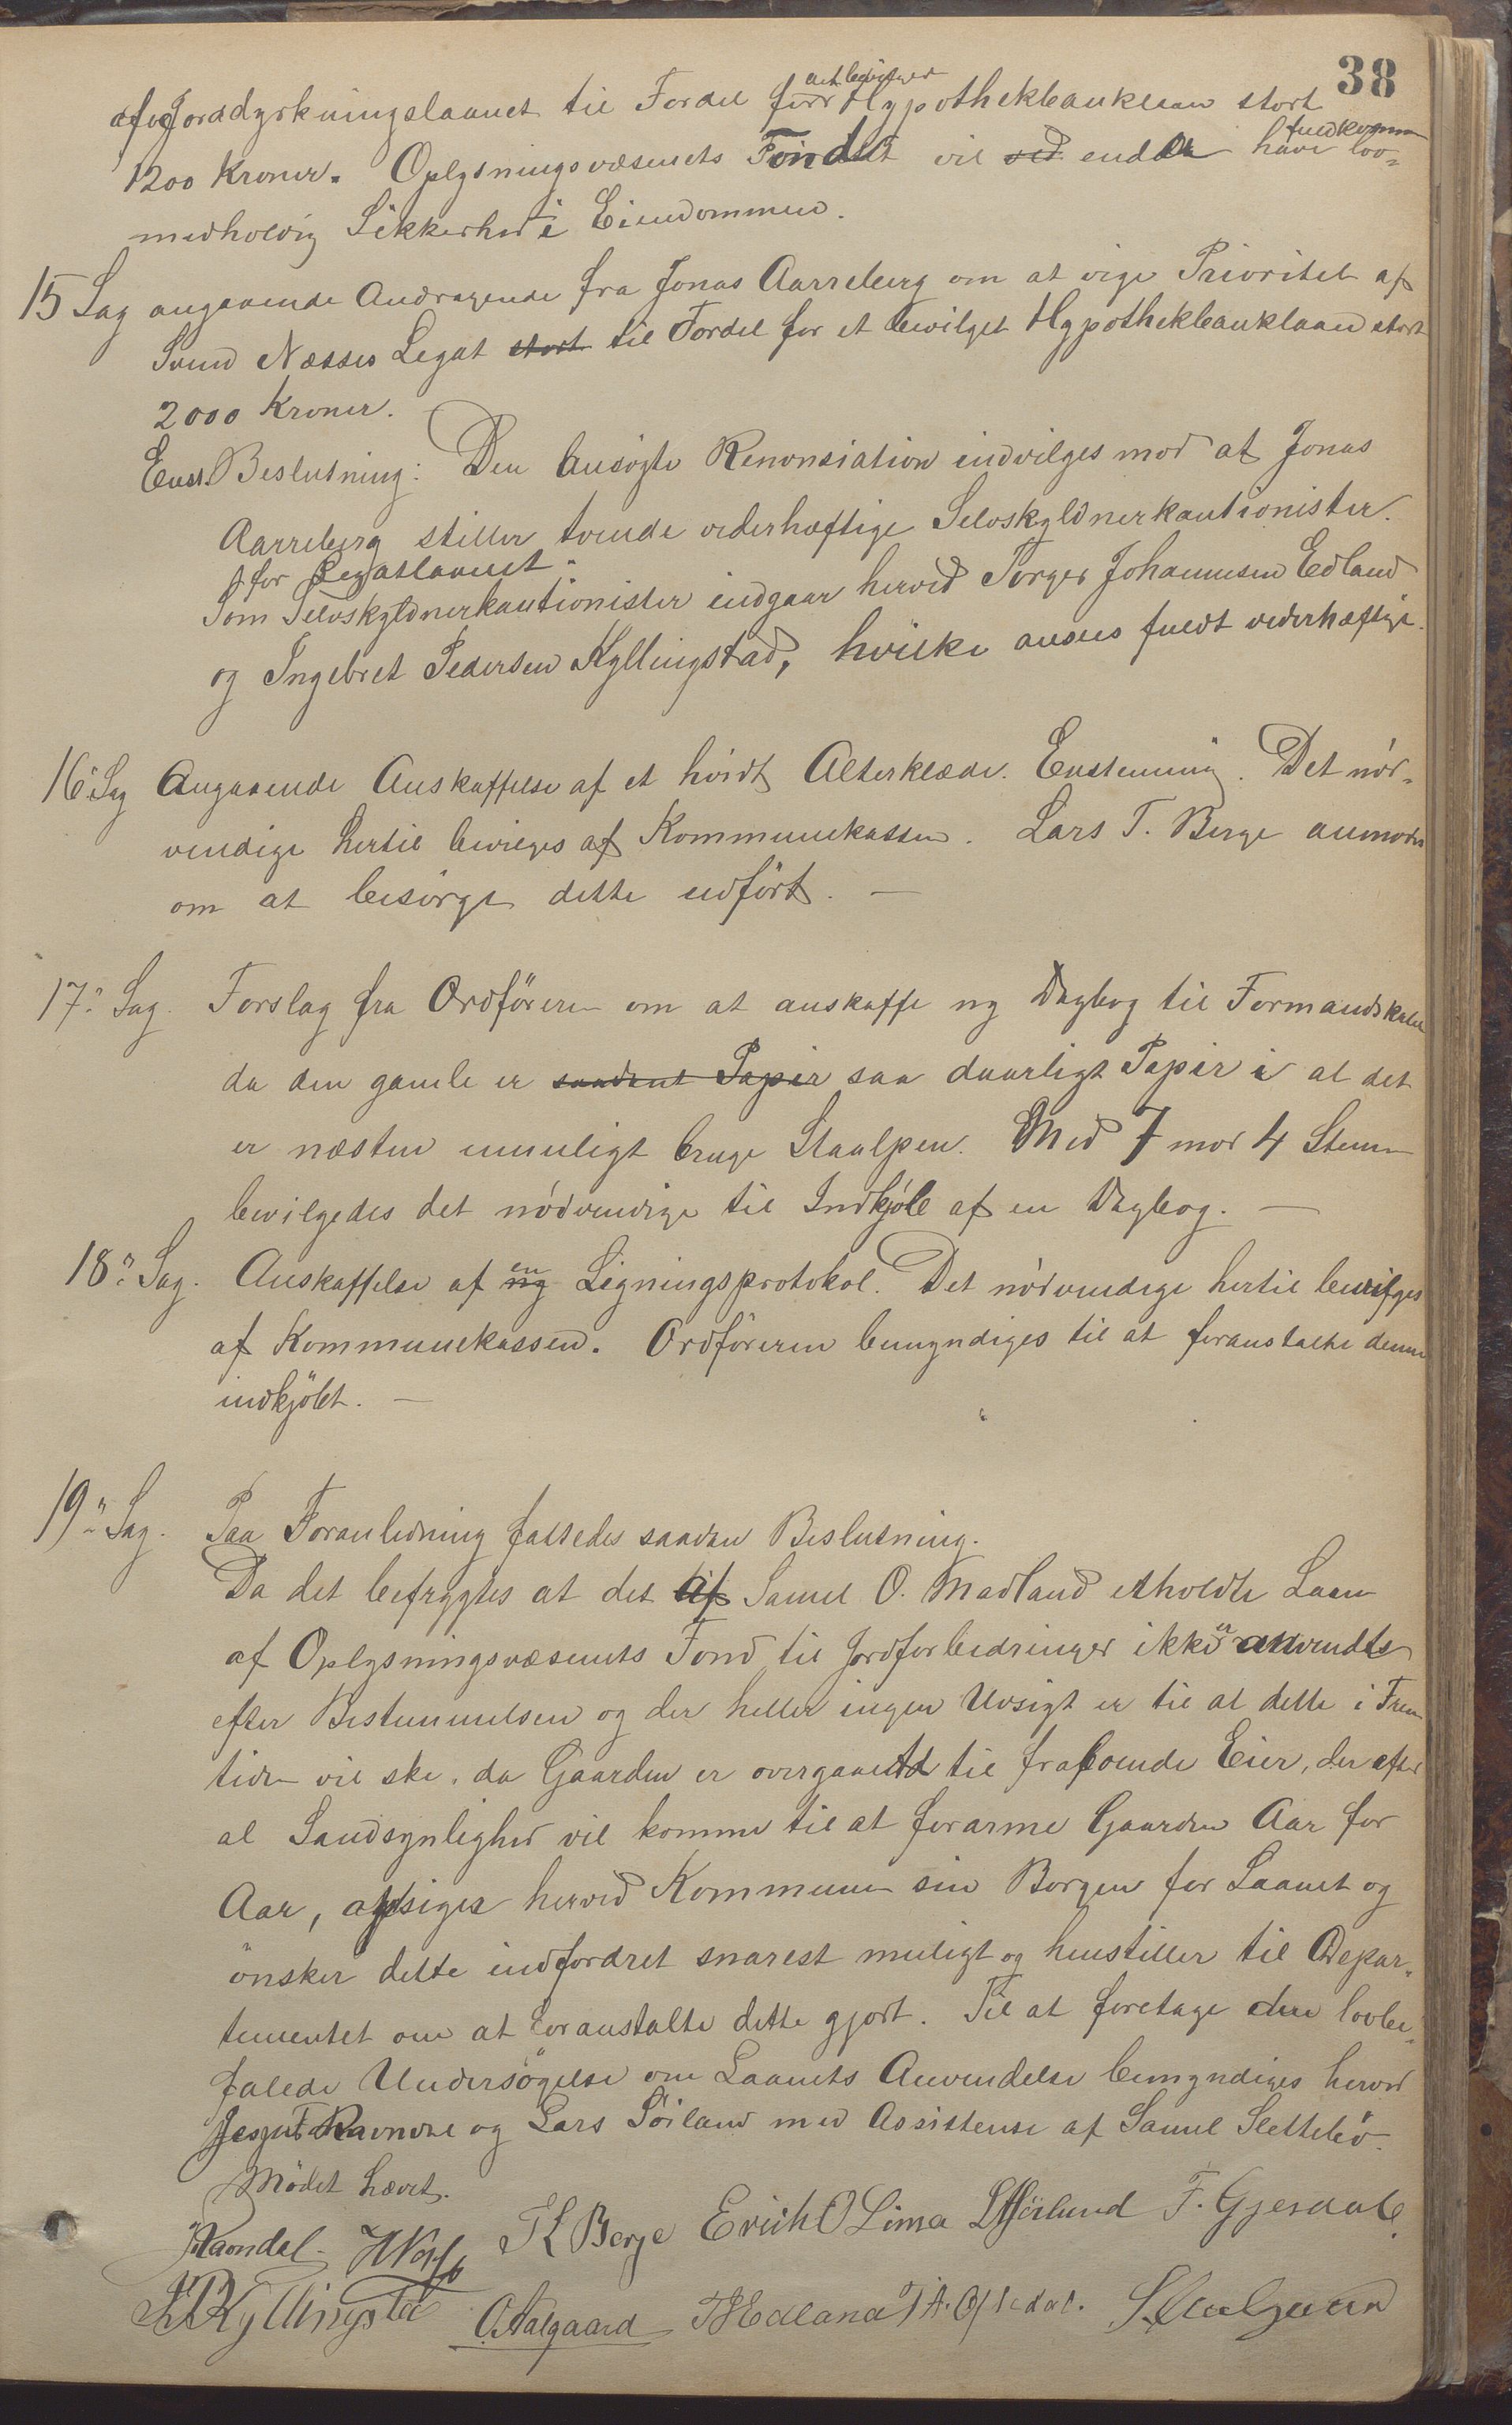 38
af Jorddyrkningslaanet til Fordel for et bevilget Hypothekbanklaan stort
1200 Kroner. Oplysningsvæsenets Fondet vil ved endda have fuldkommen lov-
medholdig Sikkerhed i Eiendommen.
15 Sag angaaende Andragende fra Jonas Aarreberg om at vige Prioritet af
Svend Næsses Legat stort til Fordel for et bevilget Hypothekbanklaan stort
2000 Kroner.
Enst. Beslutning: Den ansøgte Renonsiation indvilges mod at Jonas
Aarreberg stiller tvende vederhæftige Selvskyldnerkautionister
for Legatlaanet.
Som Selvskyldnerkautionister indgaar herved Torger Johannesen Edland
og Ingebret Pedersen Kyllingstad, hvilke ansees fuldt vederhæftige.
16de Sag Angaaende Anskaffelse af et hvidt Alterklæde. Enstemmig. Det nød-
vendige hertil bevilges af Kommunekassen. Lars T. Berge anmodes
om at besørge dette udført. —
17de Sag. Forslag fra Ordføreren om at anskaffe ny Dagbog til Formandskabet
da den gamle er saadant Papir saa daarligt Papir i at det
er næsten umuligt bruge Staalpen. Med 7 mod 4 Stemmer
bevilgedes det nødvendige til Indkjøb af en Dagbog. —
18de Sag. Anskaffelse af ny en Ligningsprotokol. Det nødvendige hertil bevilges
af Kommunekassen. Ordføreren bemyndiges til at foranstalte denne
indkjøbt. —
19de Sag. Paa Foranledning fattedes saadan Beslutning.
Da det befrygtes at det af Samel O. Madland erholdte Laan
af Oplysningsvæsenets Fond til Jordforbedringer ikke er anvendte
efter Bestemmelsen og der heller ingen Udsigt er til at dette i Frem-
tiden vil ske, da Gaarden er overgaaet til fraboende Eier, der efter
al Sandsynlighed vil komme til at forarme Gaarden Aar for
Aar, afsiger herved Kommunen sin Borgen for Laanet og
ønsker dette indfordret snarest muligt og henstiller til Depar-
tementet om at foranstalte dette gjort. Til at foretage den lovbe-
falede Undersøgelse om Laanets Anvendelse bemyndiges herved
Jesper Ravndal og Lars Søiland med Assistense af Samel Slettebø.
Mødet hævet.
Ravndal TK Berge Erich O Lima F. Gjesdal
Kyllingstad O. Aalgaard T J Edland T. A. Oftedal.